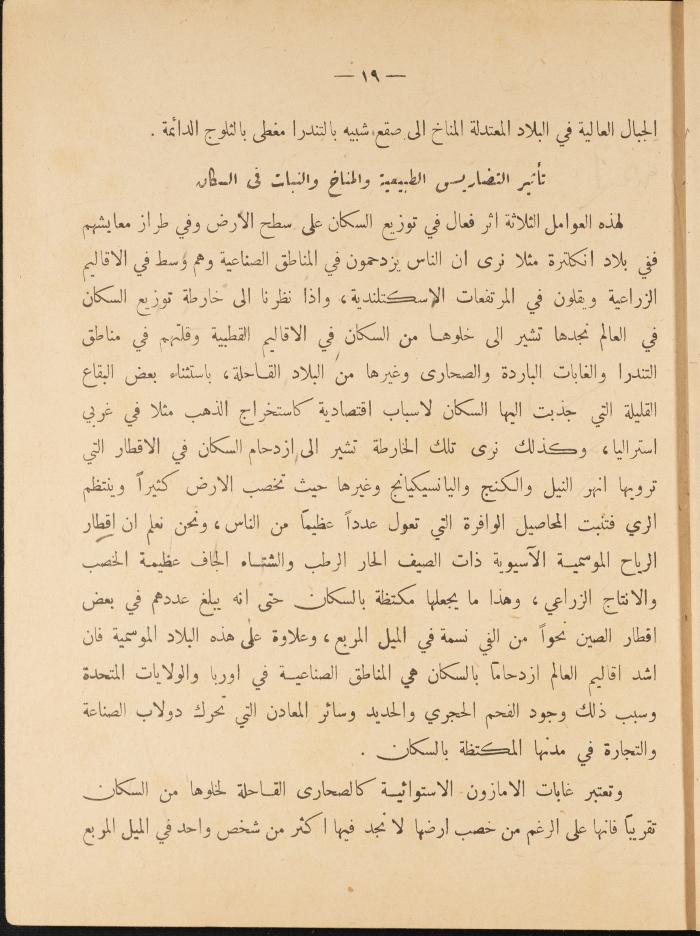 — ١٩ —
الجبال العالية في البلاد المعتدلة المناخ الى صقع شبيه بالتندرا مغطى بالثلوج الدائمة .
تأثير التضاريس الطبيعية والمناخ والنبات فى السكان
لهذه العوامل الثلاثة اثر فعال في توزيع السكان على سطح الأرض وفي طراز معايشهم
ففي بلاد انكلترة مثلا نرى ان الناس يزدحمون في المناطق الصناعية وهم وسط في الاقاليم
الزراعية ويقلون في المرتفعات الاسكتلندية، واذا نظرنا الى خارطة توزيع السكان
في العالم نجدها تشير الى خلوها من السكان في الاقاليم القطبية وقلتهم في مناطق
التندرا والغابات الباردة والصحارى وغيرها من البلاد القاحلة، باستثناء بعض البقاع
القليلة التي جذبت اليها السكان لاسباب اقتصادية كاستخراج الذهب مثلا في غربي
استراليا، وكذلك نرى تلك الخارطة تشير الى ازدحام السكان في الاقطار التي
ترويها انهر النيل والكنج واليانسيكيانج وغيرها حيث تخصب الارض كثيراً وينتظم
الري فتنبت المحاصيل الوافرة التي تعول عدداً عظيماً من الناس، ونحن نعلم ان اقطار
الرياح الموسمية الآسيوية ذات الصيف الحار الرطب والشتاء الجاف عظيمة الخصب
والانتاج الزراعي، وهذا ما يجعلها مكتظة بالسكان حتى انه يبلغ عددهم في بعض
اقطار الصين نحواً من الفي نسمة في الميل المربع، وعلاوة على هذه البلاد الموسمية فان
اشد اقاليم العالم ازدحاماً بالسكان هي المناطق الصناعية في اوربا والولايات المتحدة
وسبب ذلك وجود الفحم الحجري والحديد وسائر المعادن التي تحرك دولاب الصناعة
والتجارة في مدنها المكتظة بالسكان .
وتعتبر غابات الامازون الاستوائية كالصحارى القاحلة لخلوها من السكان
تقريباً فانها على الرغم من خصب ارضها لا نجد فيها اكثر من شخص واحد في الميل المربع